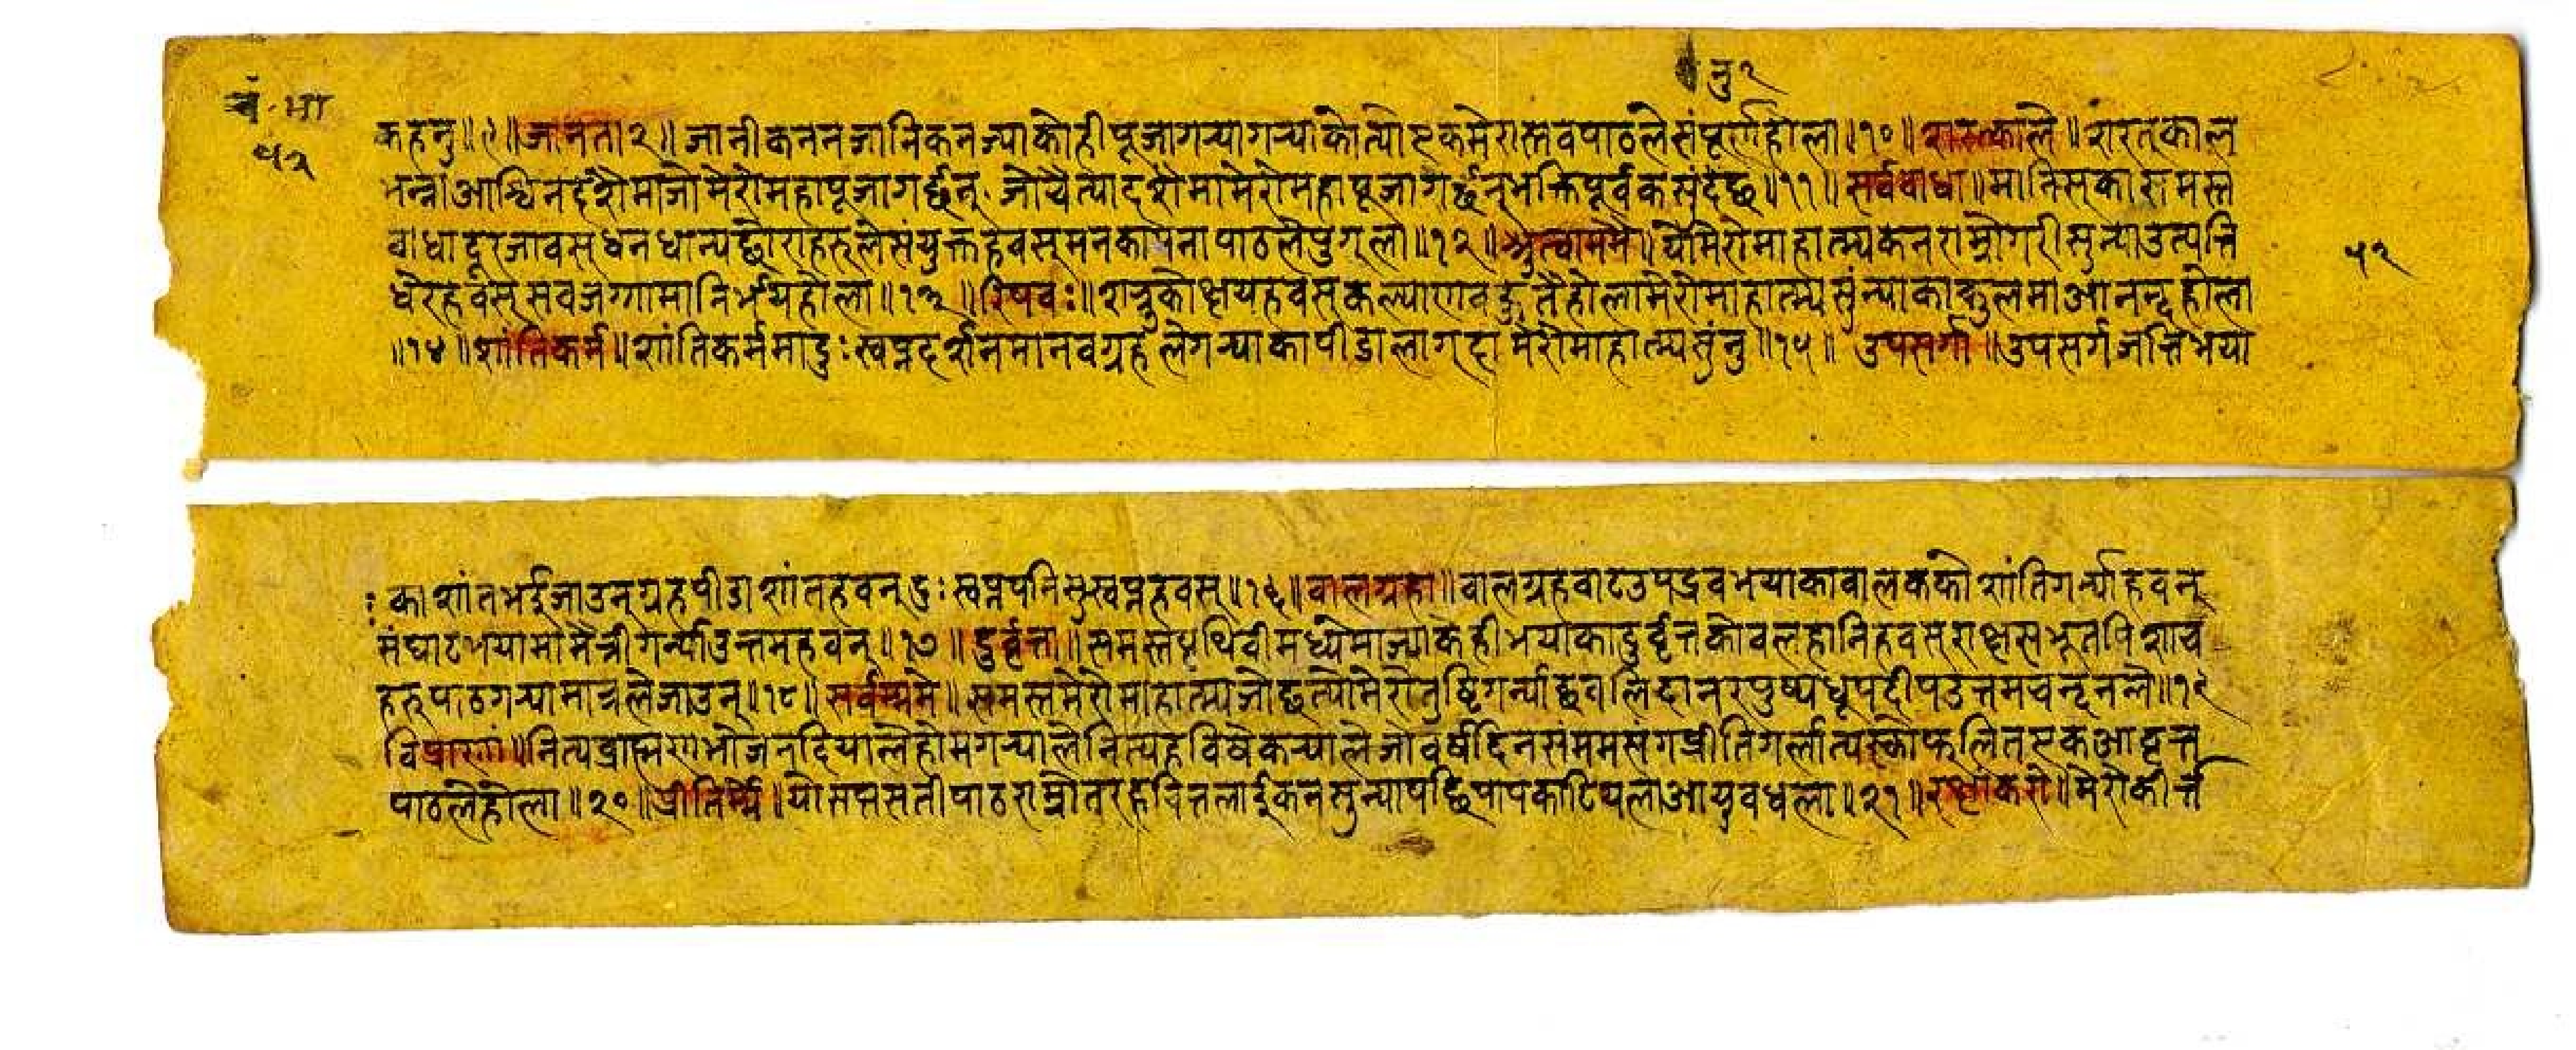 नु२
चं॰ भा
५२
कहनु॥९॥जानता२॥जानीकननजानिकनज्याकोहीपूजागर्‍यागर्‍याकोत्योएकमेरास्तवपाठलेसंपूर्णहोला॥१०॥शरत्काले॥शरत्काल
भन्नाआश्विनदशैमाजोमेरोमहापूजागर्छन्जोचैत्यादशैमामेरोमहापूजागर्छन्भक्तिपूर्वकसंदेछु॥११॥सर्वबाधा॥मानिसकासमस्त
बाधादूरजावसधनधान्यछोराहरुलेसंयुक्तहवसमनकामनापाठलेपुगूला॥१२॥श्रुत्वाममै॥येमेरोमाहात्म्यकनराम्रोगरीसुन्याउत्पत्ति
धेरैहवस्सवजग्गामानिर्भयहोला॥१३॥रिपवः॥शत्रुकोक्षयहवसकल्याणवहुतैहोलामेरोमाहात्म्यसुंन्याकाकुलमाआनन्दहोला
॥१४॥शांतिकर्म॥शांतिकर्ममादुःस्वप्नदर्शनमानवग्रहलेगर्‍याकापीडालाग्दामेरोमाहात्म्यसुंनु॥१५॥उपसर्गा॥उपसर्गजत्तिभया
५२
काशांतभईजाउन्ग्रहपीडाशांतहवन्दुःस्वप्नपनिसुस्वप्नहवस्॥१६॥बालग्रहा॥वालग्रहवाटउपद्रवभयाकावालककोशांतिगर्न्याहवन्
संघाटभयामामैत्रीगर्न्याउत्तमहवन्॥१७॥दुर्वृत्ता॥समस्तपृथिवीमध्येमाज्याकेहीभयाकादुर्वृत्तकोवलहानिहवसराक्षसभूतपिशाच
हरुपाठगर्‍यामात्रलेजाउन्॥१८॥सर्वम्ममै॥समस्तमेरोमाहात्म्यजोछत्योमेरोतुष्टिगर्न्याछवलिदानरपुष्पधूपदीपउत्तमचन्दनले॥१९
विप्राणां॥नित्यव्राह्मणभोजनदियालेहोमगर्‍यालेनित्यहविषेकर्‍यालेजोवर्षदिनसंममसंगप्रीतिगर्लात्यस्कोफलितएकआवृत्त
पाठलेहोला॥२०॥प्रीतिर्म्मे॥योसप्तसतीपाठराम्रोतरहचित्तलाईकनसुन्यापछिपापकाटियलाआयुवधला॥२१॥रक्षांकरो॥मेरोकीर्त्त